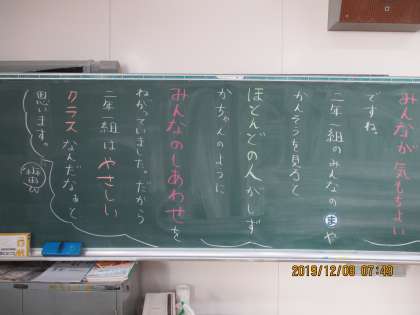 みんなが気もちよい
ですね。
二年一組のみんなの ま や
かんそうを見ると
ほとんどの人がしず
かちゃんのように
みんなのしあわせを
ねがっていました。だから
二年一組はやさしい
クラスなんだなぁと
思います。
2019/12/09 07:49